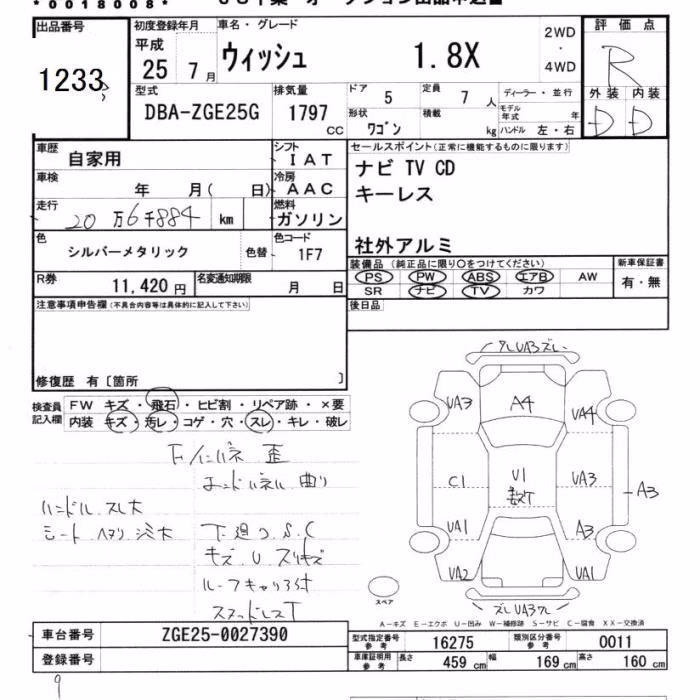 *0018008*
出品番号
1233
初度登録年月
平成
25 7月
車名・グレード
ウィッシュ 1.8X
2WD
・
4WD
評価点
R
外装 内装
D D
型式
DBA-ZGE25G
排気量
1797
CC
ドア
5
定員
7 人
形状
ワゴン
積載
kg
ディーラー・並行
モデル年式 年
ハンドル 左・右
車歴
自家用
シフト
IAT
車検
年 月( 日)
冷房
AAC
走行
20万6千884 km
燃料
ガソリン
色
シルバーメタリック
色替
色コード
1F7
R券
11,420 円
名変通知期限
月 日
セールスポイント(正常に機能するものに限ります)
ナビ TV CD
キーレス
社外アルミ
装備品 (純正品に限り○をつけてください)
PS PW ABS エアB AW
SR ナビ TV カワ
新車保証書
有・無
後日品
注意事項申告欄(不具合内容等は具体的に記入して下さい)
修復歴 有〔箇所 〕
検査員記入欄
FW キズ・飛石・ヒビ割・リペア跡・×要
内装 キズ・汚レ・コゲ・穴・スレ・キレ・破レ
F/インパネ 歪
エンドパネル 曲り
ハンドル スレ大
シート ヘタリ シミ大
下廻り S.C
キズ U スリキズ
ルーフキャリア付
スタッドレスT
ズレUA3ズレ
UA3 A4 UA4
C1 U1 UA3 A3
UA1 A3
UA2 UA1
スペア
A-キズ E-エクボ U-凹み W-補修跡 S-サビ C-腐食 XX-交換済
車台番号
ZGE25-0027390
登録番号
型式指定番号
参考
16275
類別区分番号
参考
0011
車庫証明用
参考
長さ 459 cm 幅 169 cm 高さ 160 cm